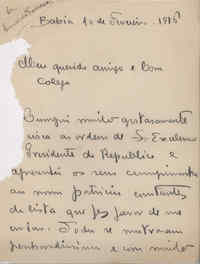 Bahia 10 de Fevereiro. 1915
Meu querido amigo e Bom
Collega
Cumpri muito gostosamente
a ordem de S. Excelencia
Presidente da Republica e
apresentei os seus cumprimentos
ao nom patricios constantes
da lista que fez favor de me
enviar. Todos se mostraram
penhoradissimos e com muito